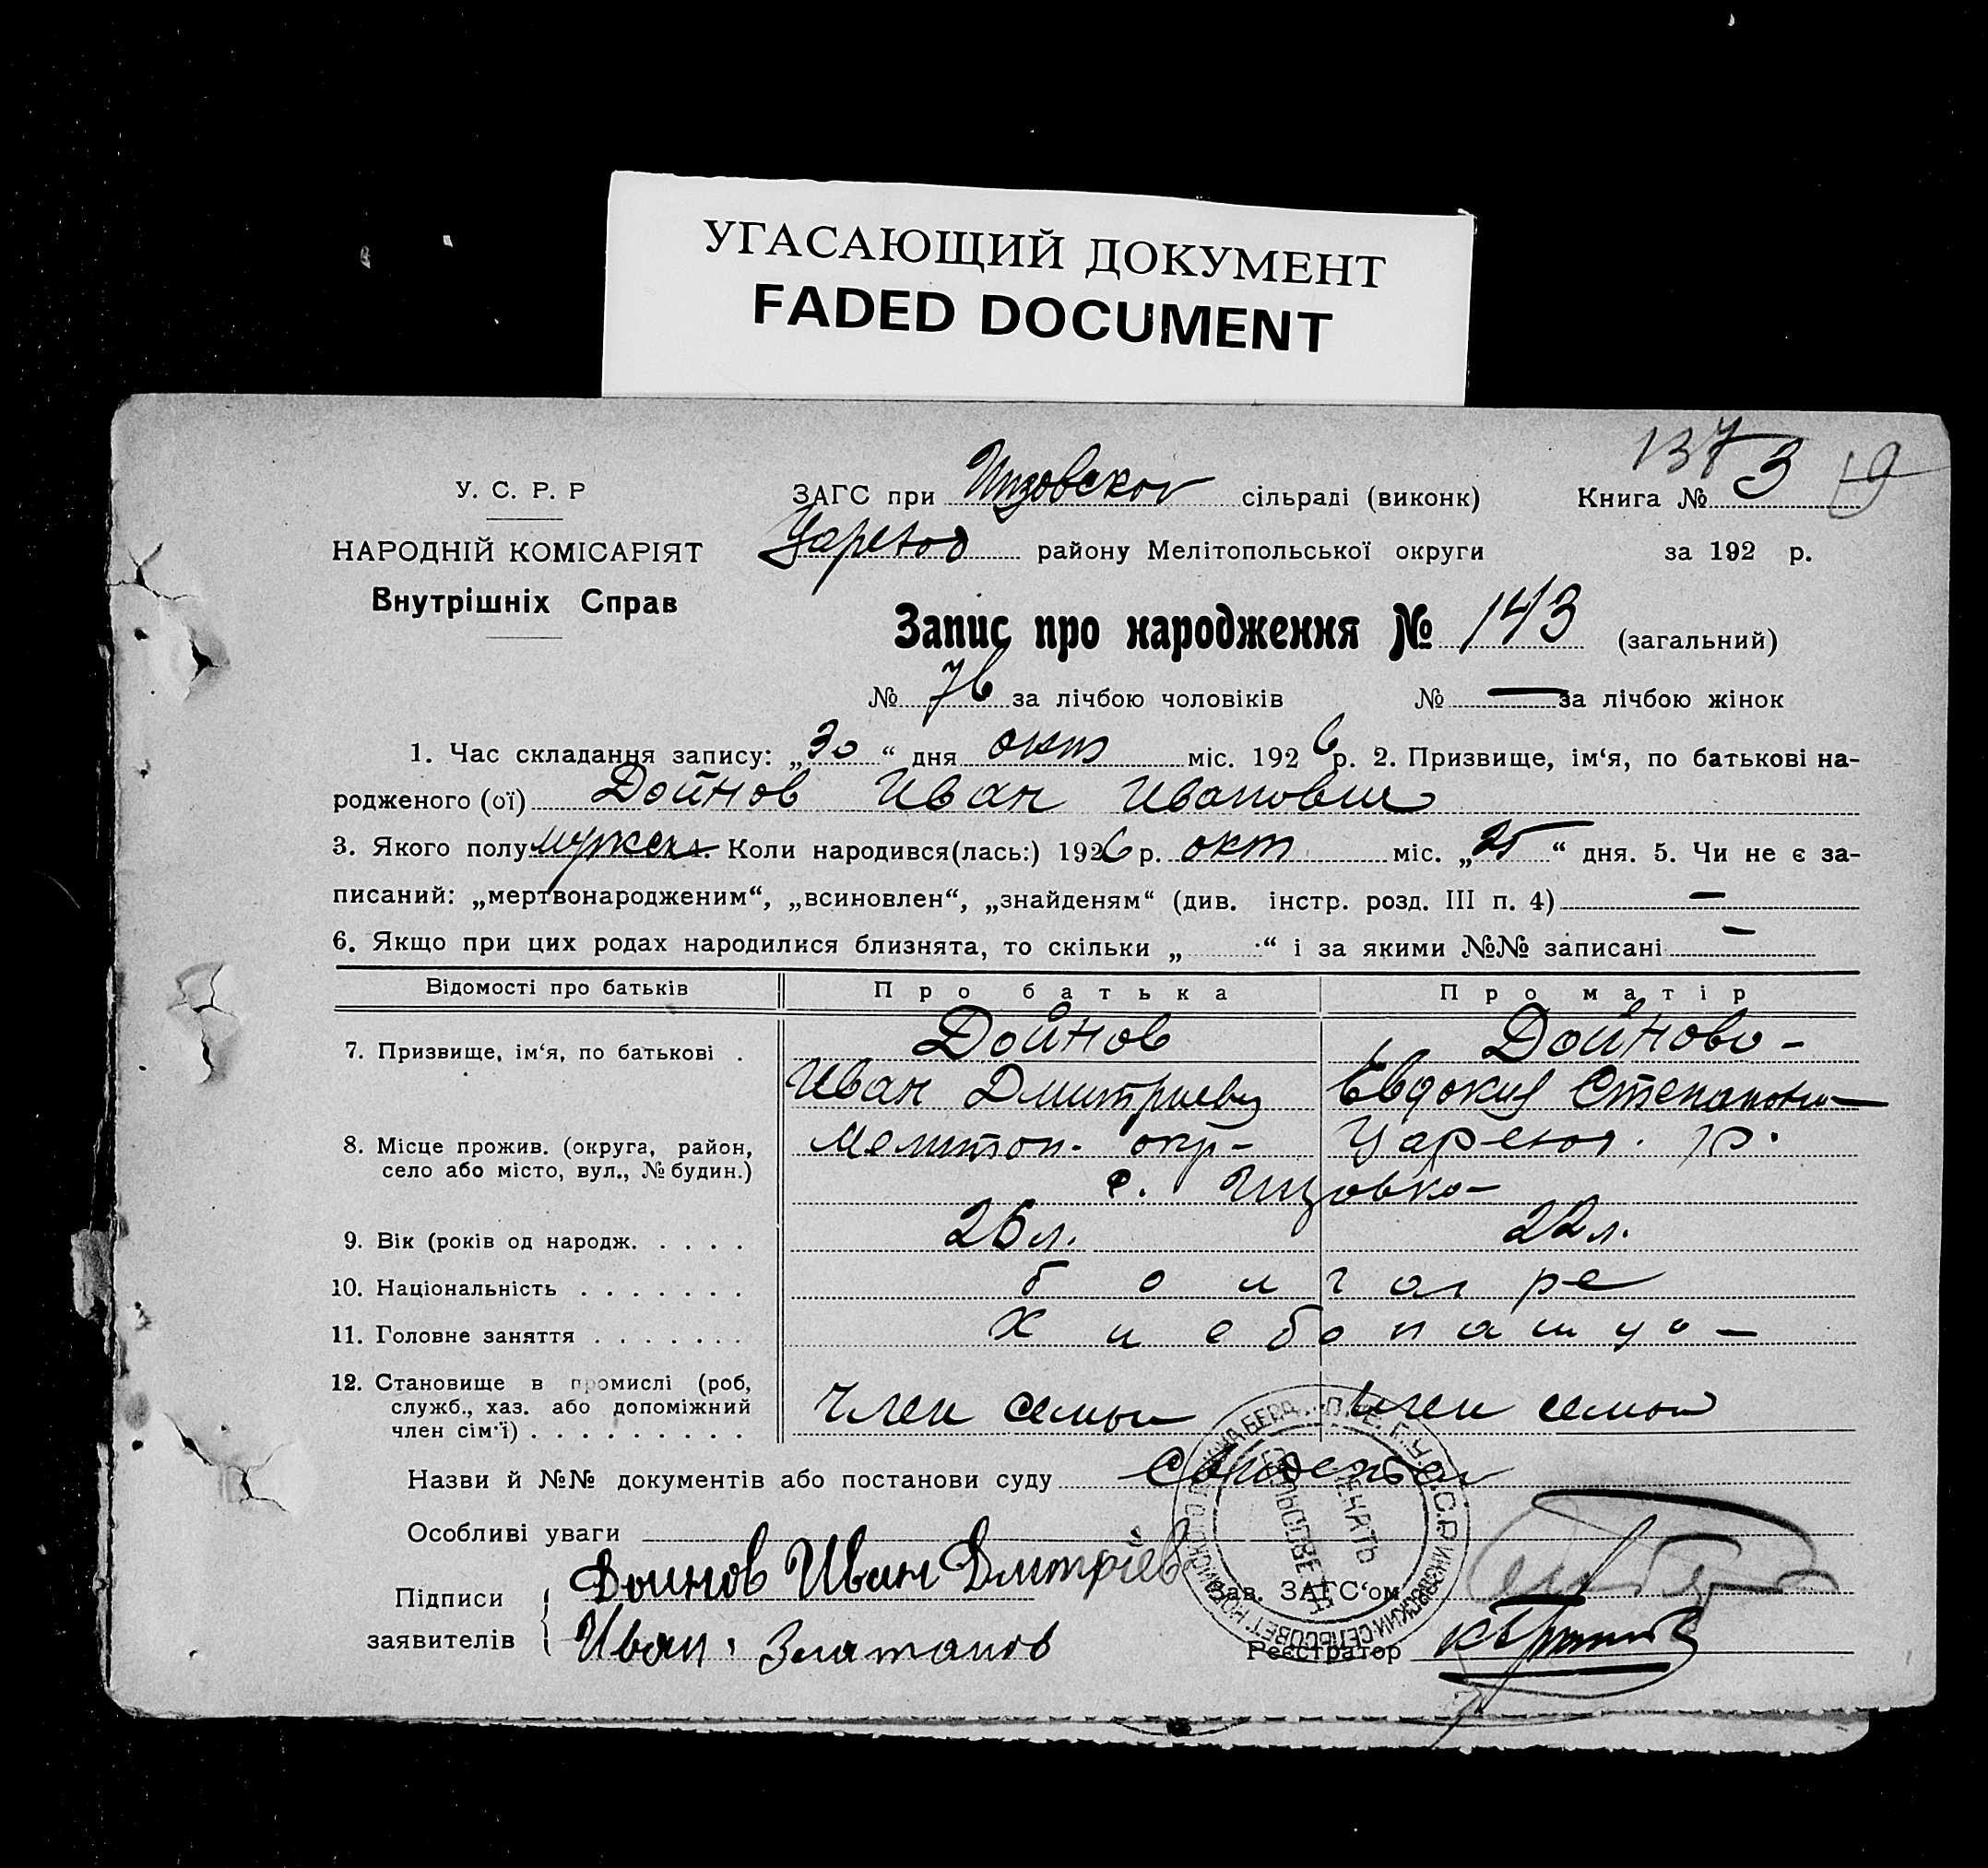 УГАСАЮЩИЙ ДОКУМЕНТ
FADED DOCUMENT
137
У. С. Р. Р
ЗАГС при Инзовской сільраді (виконк)
Книга № 3 19
НАРОДНІЙ КОМІСАРІЯТ
Царевод району Мелітопольської округи
за 192 р.
Внутрішніх Справ
Запис про народження № 143 (загальний)
№ 76 за лічбою чоловіків № — за лічбою жінок
1. Час складання запису: „30“ дня окт міс. 1926 р. 2. Призвище, ім‘я, по батькові на-
родженого (ої) Дойнов Иван Иванович
3. Якого полу мужск 4. Коли народився(лась:) 1926 р. окт міс. „25“ дня. 5. Чи не є за-
писаний: „мертвонародженим“, „всиновлен“, „знайденям“ (див. інстр. розд. III п. 4) —
6. Якщо при цих родах народилися близнята, то скільки „ “ і за якими №№ записані —
Відомості про батьків Про батька Про матір
7. Призвище, ім‘я, по батькові . Дойнов Дойнова
Иван Дмитриев Евдокия Степановна
8. Місце прожив. (округа, район, Мелитоп. окр- Царевод. р.
село або місто, вул., № будин.) с. Инзовка
9. Вік (років од народж. . . . . 26 л. 22 л.
10. Національність . . . . . . . болгаре
11. Головне заняття . . . . . . . Хлебопашцы
12. Становище в промислі (роб,
служб., хаз. або допоміжний Член семьи Член семьи
член сім‘ї) . . . . . . . . .
Назви й №№ документів або постанови суду
Особливі уваги
Доинов Иван Дмитріев
Підписи
Зав. ЗАГС‘ом
заявителів Иван Златанов
Реєстратор
ПЕЧАТЬ